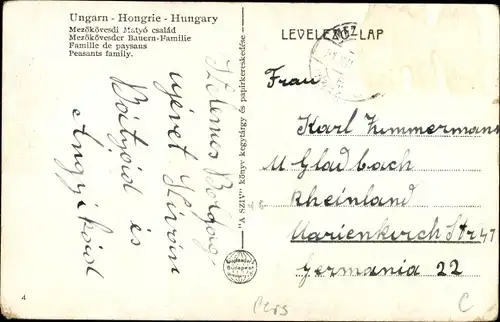 Ungarn - Hongrie - Hungary
Mezőkövesdi Matyó család
Mezőkövesder Bauern-Familie
Famille de paysaus
Peasants family.
LEVELEZŐ-LAP
Kellemes Boldog
ujévet kiván
Bátyóid és
Angyikáid
"A SZIV" könyv kegytárgy és papirkereskedése
Budapest
Frau
Karl Zimmermann
M Gladbach
Rheinland
Marienkirch Str 47
Germania 22
4
Pers
C